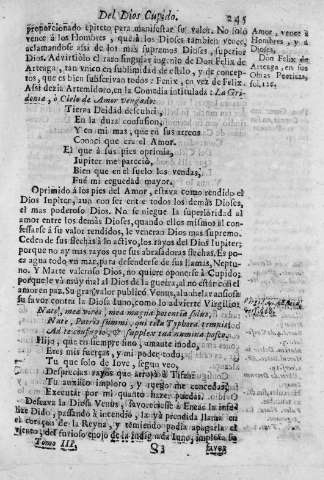 Del Dios Cupido. 245
proporcionado epiteto para manifestar su valor. No solo
vence à los Hombres, quedà los Dioses tambien vence,
aclamandose assi de los màs supremos Dioses, superior
Dios. Advirtiòlo el raro singular ingenio de Don Felix de
Arteaga, tan unico en sublimidad de estylo, y de concep-
tos, que es bien subscrivan todos: Fenix, en vez de Felix
Assi dezia Artemidoro, en la Comedia intitulada: La Gri-
denia, o Cielo de Amor vengado:
Tierra Deidad descubrì,
En la dura confusion,
Y en mi mas, que en sus arreos
Conocì que era el Amor.
El que à sus pies oprimia,
Iupiter me pareciò,
Bien que en el suelo los vendas,
Fuè mi ceguedad mayor.
Oprimido à los pies del Amor, estava como rendido el
Dios Iupiter, aun con ser entre todos los demàs Dioses,
el mas poderoso Dios. No se niegue la superioridad al
amor entre los demàs Dioses, quando ellos mismos al con-
fessarse à su valor rendidos, le veneran Dios mas supremo.
Ceden de sus flechas à lo activo, los rayos del Dios Iupiter;
porque no ay mas rayos que sus abrasadoras flechas. Es po-
ca agua todo un mar, para defenderse de sus llamas, Neptu-
no. Y Marte valeroso Dios, no quiere oponerse à Cupido;
porque le và muy mal al Dios de la guerra, al no estàr con el
amor en paz. Su gran valor publicò Venus, al anhelar ansiosa
su favor contra la Diosa Iuno, como lo advierte Virgilio:
Nate, meæ vires, mea magna potentia solus,
Nate, Patris summi, qui tela Typhœa temnis;
Ad te confugio, & supplex tua numina posco.
Hijo, que en siempre fino, amante modo,
Eres mis fuerças, y mi poder todo;
Tu que solo de Iove, segun veo,
Desprecias rayos que arrojò à Tifeo:
Tu auxilio imploro, y luego me concedas,
Executar por mi quanto hazer puedas.
Deseava la Diosa Venus, favoreciesse à Eneas la infe-
lize Dido, passando à incendio, la yà prendida llama en
el coraçon de la Reyna, y temiendo podia apagarla el
viento, del furioso enojo de la indignada Iuno, implora su
Tomo III. Q3 favor
Amor, vence à
Hombres, y à
Dioses.
Don Felix de
Arteaga, en sus
Obras Poeticas,
fol. 116.